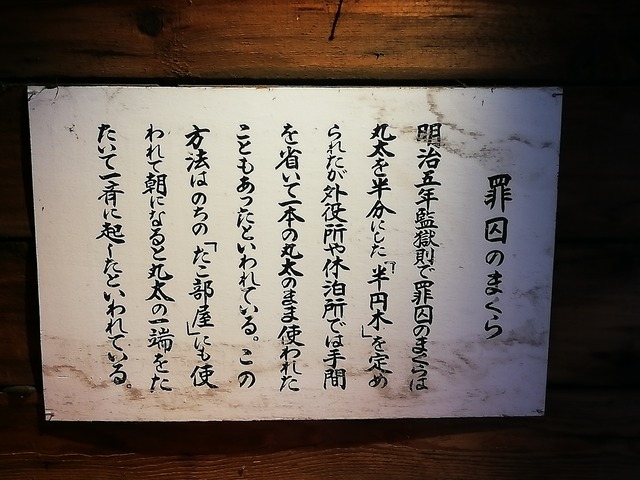 罪囚のまくら
明治五年監獄則で罪囚のまくらは
丸太を半分にした『半円木」を定め
られたが外役所や休泊所では手間
を省いて一本の丸太のまま使われた
こともあったといわれている。この
方法はのちの「たこ部屋」にも使
われて朝になると丸太の一端をた
たいて一斉に起したといわれている。